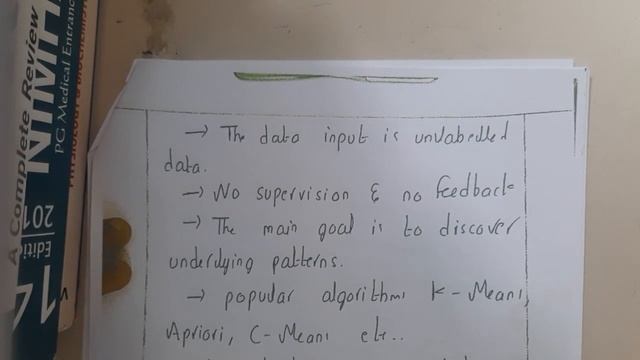 A Complete Review
NIMH
PG Medical Entranc
PHYSIOLOGY & BIOCHEMIS
Editi
201
14
→ The data input is unlabelled
data.
→ No supervision & no feedback
→ The main goal is to discover
underlying patterns.
→ popular algorithms K-Means,
Apriori, C-Means etc..